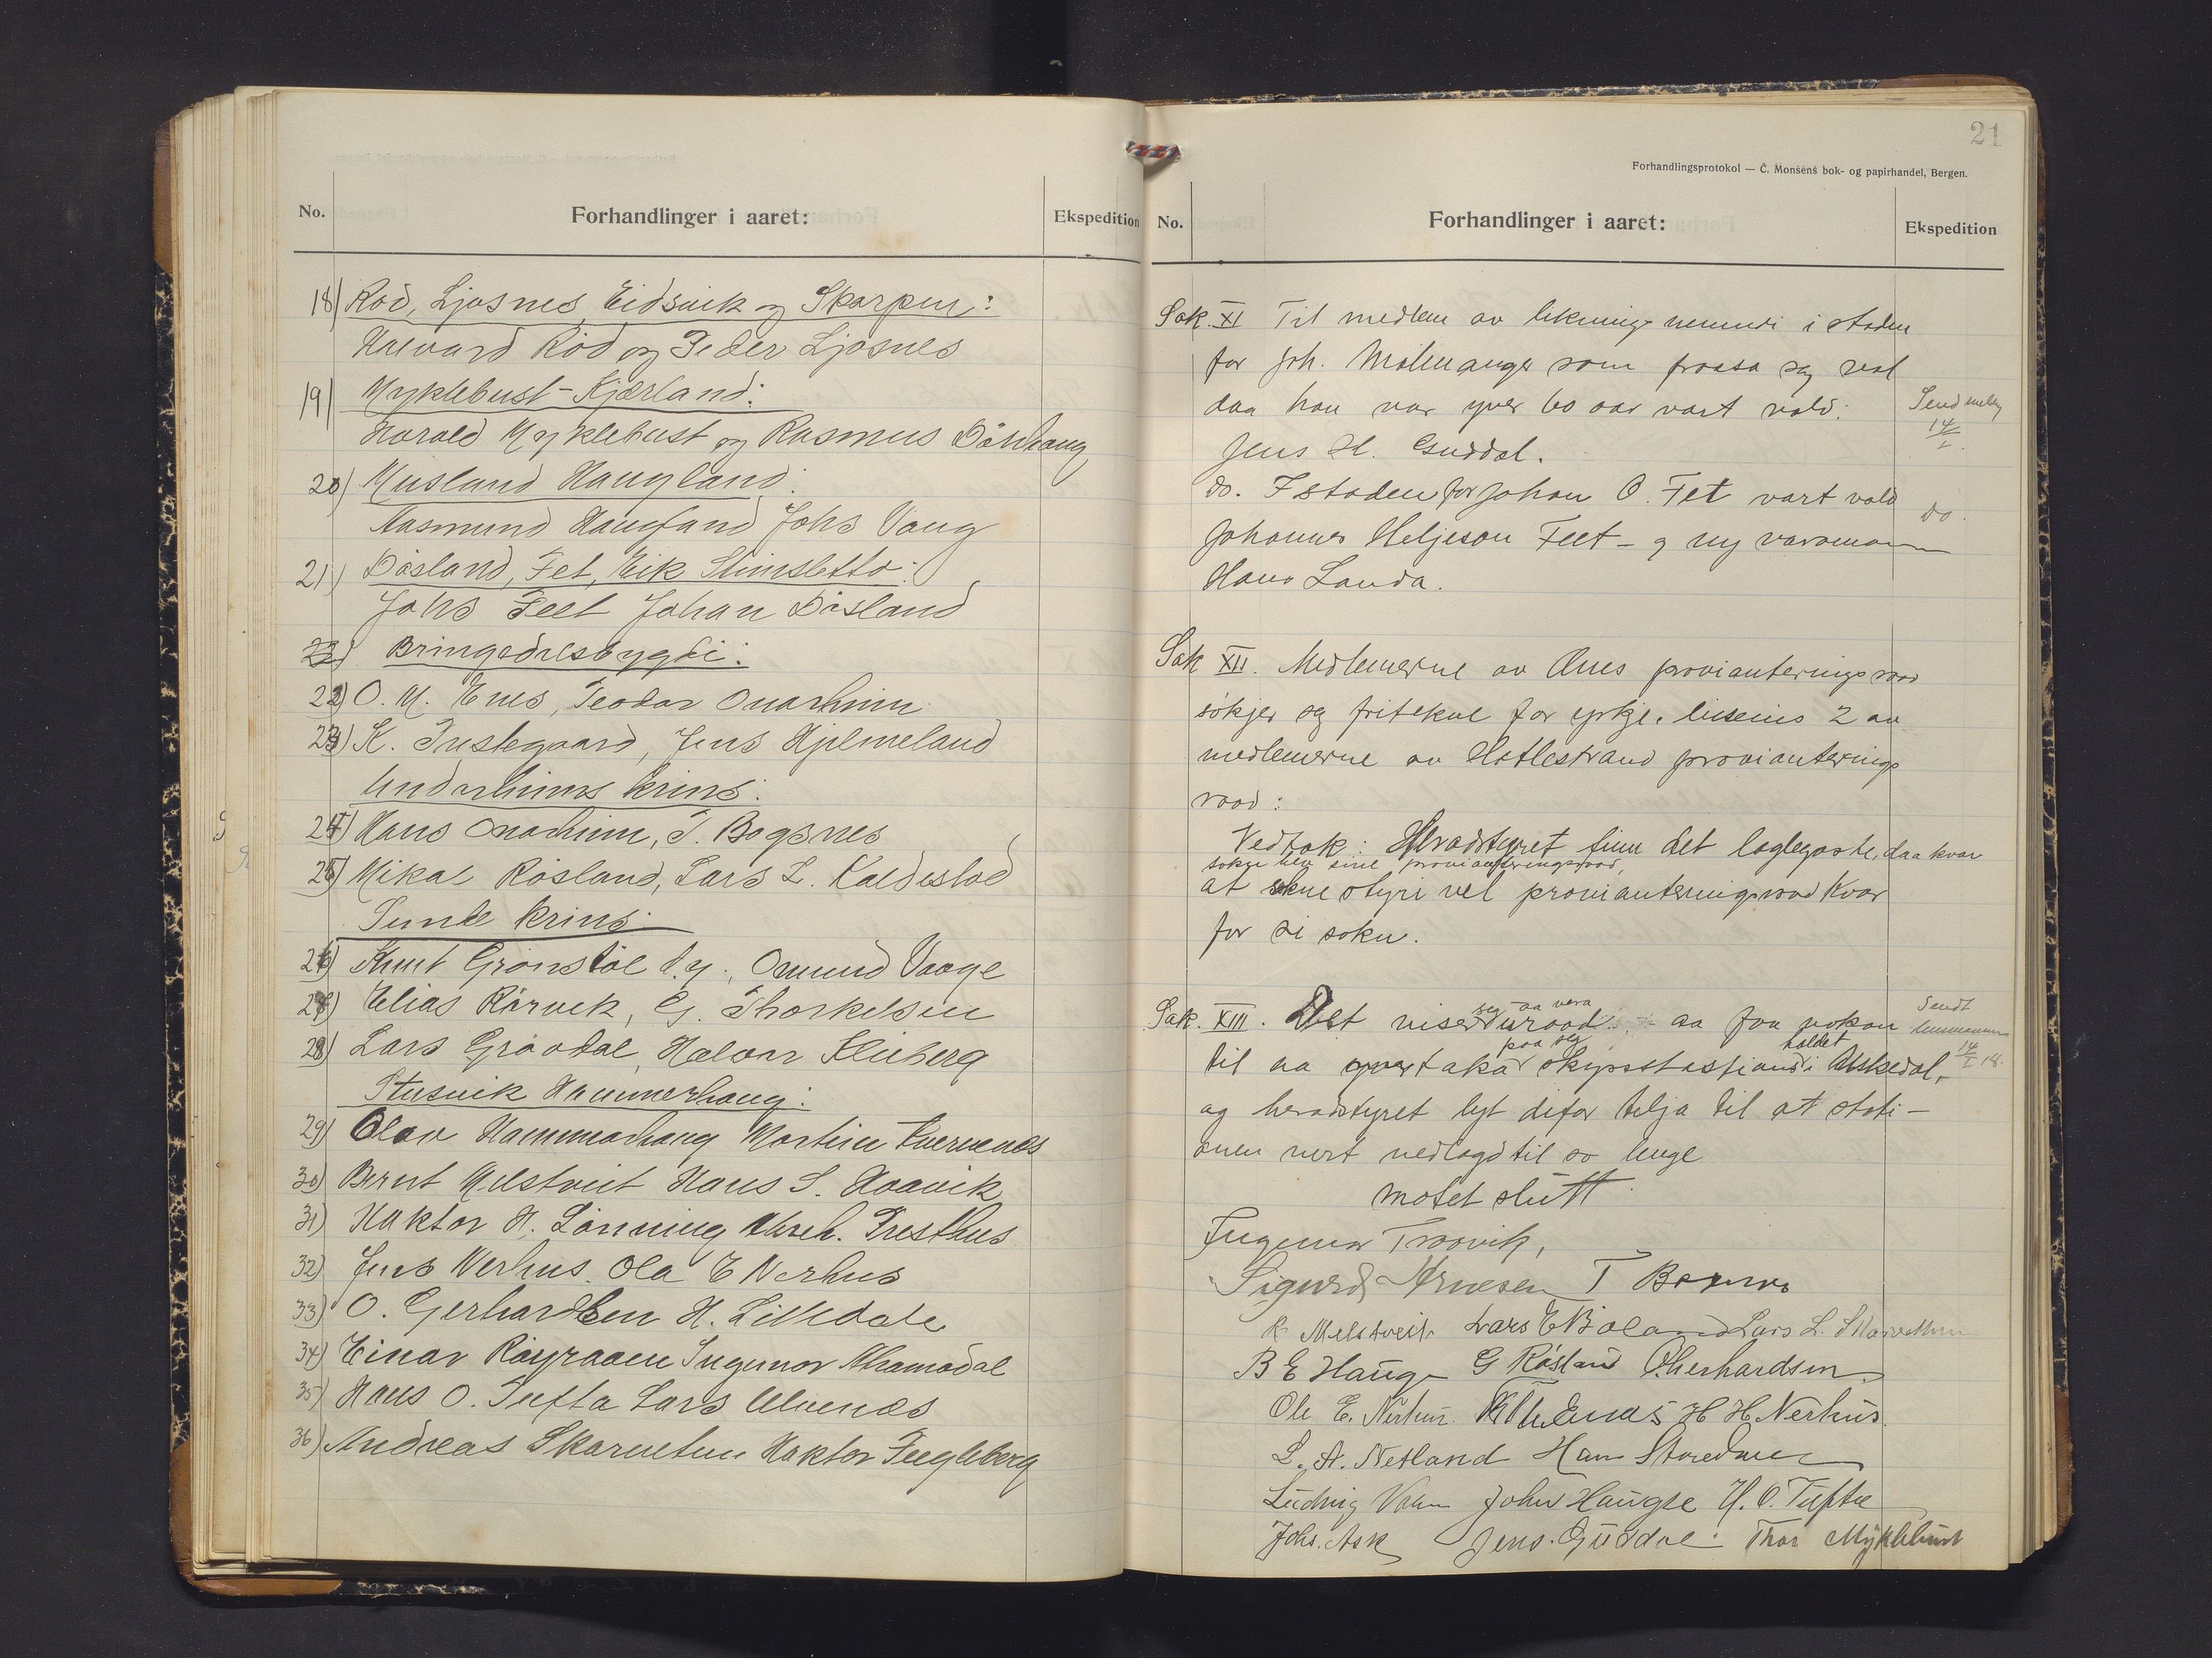 No. Forhandlinger i aaret: Ekspedition
18) Röd, Ljosnes, Eidsvik og Skarpen:
Halvard Röd og Peder Ljosnes
19) Myklebust-Kjærland:
Harald Myklebust og Rasmus Döshaug
20) Musland Haugland.
Aasmund Haugland Johs Vaag
21) Dösland, Fet, Eik
Johs Feet Johan Dösland
Bringedalsbygdi:
22) O. M. Enes, Teodor Onarheim
23) K. Tustegaard, Jens Hjelmeland
Undarheims krins.
24) Hans Onarheim, T. Bogsnes
25) Mikal Rösland, Lars L. Kaldestad
Sunde krins:
26) Knut Grönstöl d.y., Omund Vaage
27) Elias Rörvik, G. Thorkelsen
28) Lars Graadal, Halvor Kleiberg
Stusvik Hammerhaug:
29) Olav Hammerhaug Martin Kvernenes
30) Bernt Melstveit Hans S. Hoavik
31) Haktor H. Lönning Presthus
32) Jens Nerhus. Ola E Nerhus
33) O. Gerhardsen H. Lilledale
34) Einar Röyraaen Ingemor
35) Hans O. Tufta Lars Ulvenes
36) Andreas Skarvetun Haktor Fugleberg
21
Forhandlingsprotokol — C. Monsens bok- og papirhandel, Bergen.
No. Forhandlinger i aaret: Ekspedition
Sak. XI Til medlem av likningsnemndi i staden
for Joh. Malmanger som fraasa seg val
daa han var yver 60 aar vart vald: Send
14
Jens H. Guddal.
do. I staden for Johan O. Fet vart vald do.
Johannes Heljeson Feet - og ny varamann
Hans Landa.
Sak XII. Medlemerne av Ænes provianteringsraad
sökjer seg fritekne for yrkje. likeeins 2 av
medlemerne av Hatlestrand provianterings
raad:
Vedtak: Heradstyret finn det laglegaste, daa kvar
sokn hev sine provianteringsraad,
at sokne styri vel provianteringsraad kvar
for si sokn.
Sak. XIII. Det viser seg aa vera uraad aa faa nokon Sendt
til aa overtaka paa seg skyssstasjonen haldet i Uskedal, 14 18.
og heradstyret lyt difor telja til at stati-
onen vert nedlagd til so lenge
motet slutt.
Ingemar Traavik,
Sigurd Arnesen T Bognes
K Melstveit Lars E Böland Lars L. Skarvetun
B E Hauge G Rösland O. Gerhardsen
Ole E. Nerhus. O M Enæs H H Nerhus.
L. A. Netland Hans
Ludvig Valen John Haugse H. O. Tufta
Johs. Ask Jens. Guddal. Thor Myklebust